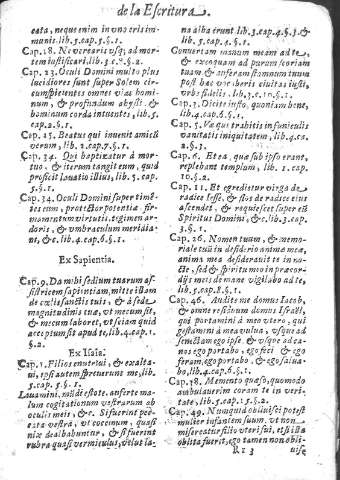 de la Escritura.
cata, neque enim in uno eris im-
munis. lib.3.cap.5.§.1.
Cap. 18. Ne verearis usq; ad mor-
tem iustificari. lib.3.c.9.§.2.
Cap. 23. Oculi Domini multo plus
lucidiores sunt super Solem cir-
cumspicientes omnes vias homi-
num, & profundum abyssi. &
hominum corda intuentes, lib.5.
cap.2.§.1.
Cap. 25. Beatus qui invenit amicũ
verum, lib.2.cap.7.§.1.
Cap. 34. Qui baptizatur à mor-
tuo, & iterum tangit eum, quid
proficit lauatio illius, lib.3.cap.
5.§.1.
Cap. 34. Oculi Domini super timẽ-
tes eum, protector potentiæ fir-
mamentum virtutis, tegimen ar-
doris, & umbraculum meridia-
ni, &c. lib.4.cap.6.§.1.
Ex Sapientia.
Cap. 9. Da mihi sedium tuarum as-
sistricem sapientiam, mitte illam
de cœlis sanctis tuis, & à sede
magnitudinis tuæ, ut mecum sit,
& mecum laboret, ut sciam quid
acceptum sit apud te, lib.4.cap.1.
§.2.
Ex Isaia.
Cap. 1. Filios enutrivi, & exalta-
vi, ipsi autem spreverunt me, lib.
5.cap.1.§.1.
Lavamini, mundi estote, auferte ma-
lum cogitationum vestrarum ab
oculis meis, &c. Si fuerint pec-
cata vestra, vt coccinum, quasi
nix dealbabuntur, & si fuerint
rubra quasi vermiculus, velut la-
na alba erunt. lib.3.cap.4.§.3. &
lib.5.cap.4.§.1.
Convertam manum meam ad te,
& excoquam ad purum scoriam
tuam, & auferam stamnum tuum
post hæc vocaberis civitas iusti,
vrbs fidelis. lib.3.c.10.§.1.
Cap. 3. Dicite iusto, quoniam bene,
lib.4.cap.6.§.1.
Cap. 5. Væ qui trahitis in funiculis
vanitatis iniquitatem, lib.4.ca.
3.§.1.
Cap. 6. Et ea, quæ sub ipso erant,
replebant templum, lib.1.cap.
10.§.2.
Cap. 11. Et egredietur virga de
radice Iesse, & flos de radice eius
ascendet, & requiescet super eũ
Spiritus Domini, &c. lib.3.cap.
3.§.1.
Cap. 26. Nomen tuum, & memo-
riale tuũ in desiderio animæ meæ,
anima mea desideravit te in no-
cte, sed & spiritu meo in præcor-
dijs meis de mane vigilabo ad te,
lib.5.cap.6.§.1.
Cap. 46. Audite me domus Iacob,
& omne residuum domus Israël,
qui portamini à meo vtero, qui
gestamini à mea vulva, vsque ad
senectam ego ipse, & vsque ad ca-
nos ego portabo, ego feci, & ego
feram, ego portabo, & ego salvabo,
lib.5.cap.1.§.1.
Cap. 38. Memento quæso, quomodo
ambulaverim coram te in veri-
tate, lib.5.cap.5.§.1.
Cap. 49. Nunquid oblivisci potest
mulier infantem suum, vt non
misereatur filio vteri sui, et si illa
oblita fuerit, ego tamen non obli-
Rr3 vis-